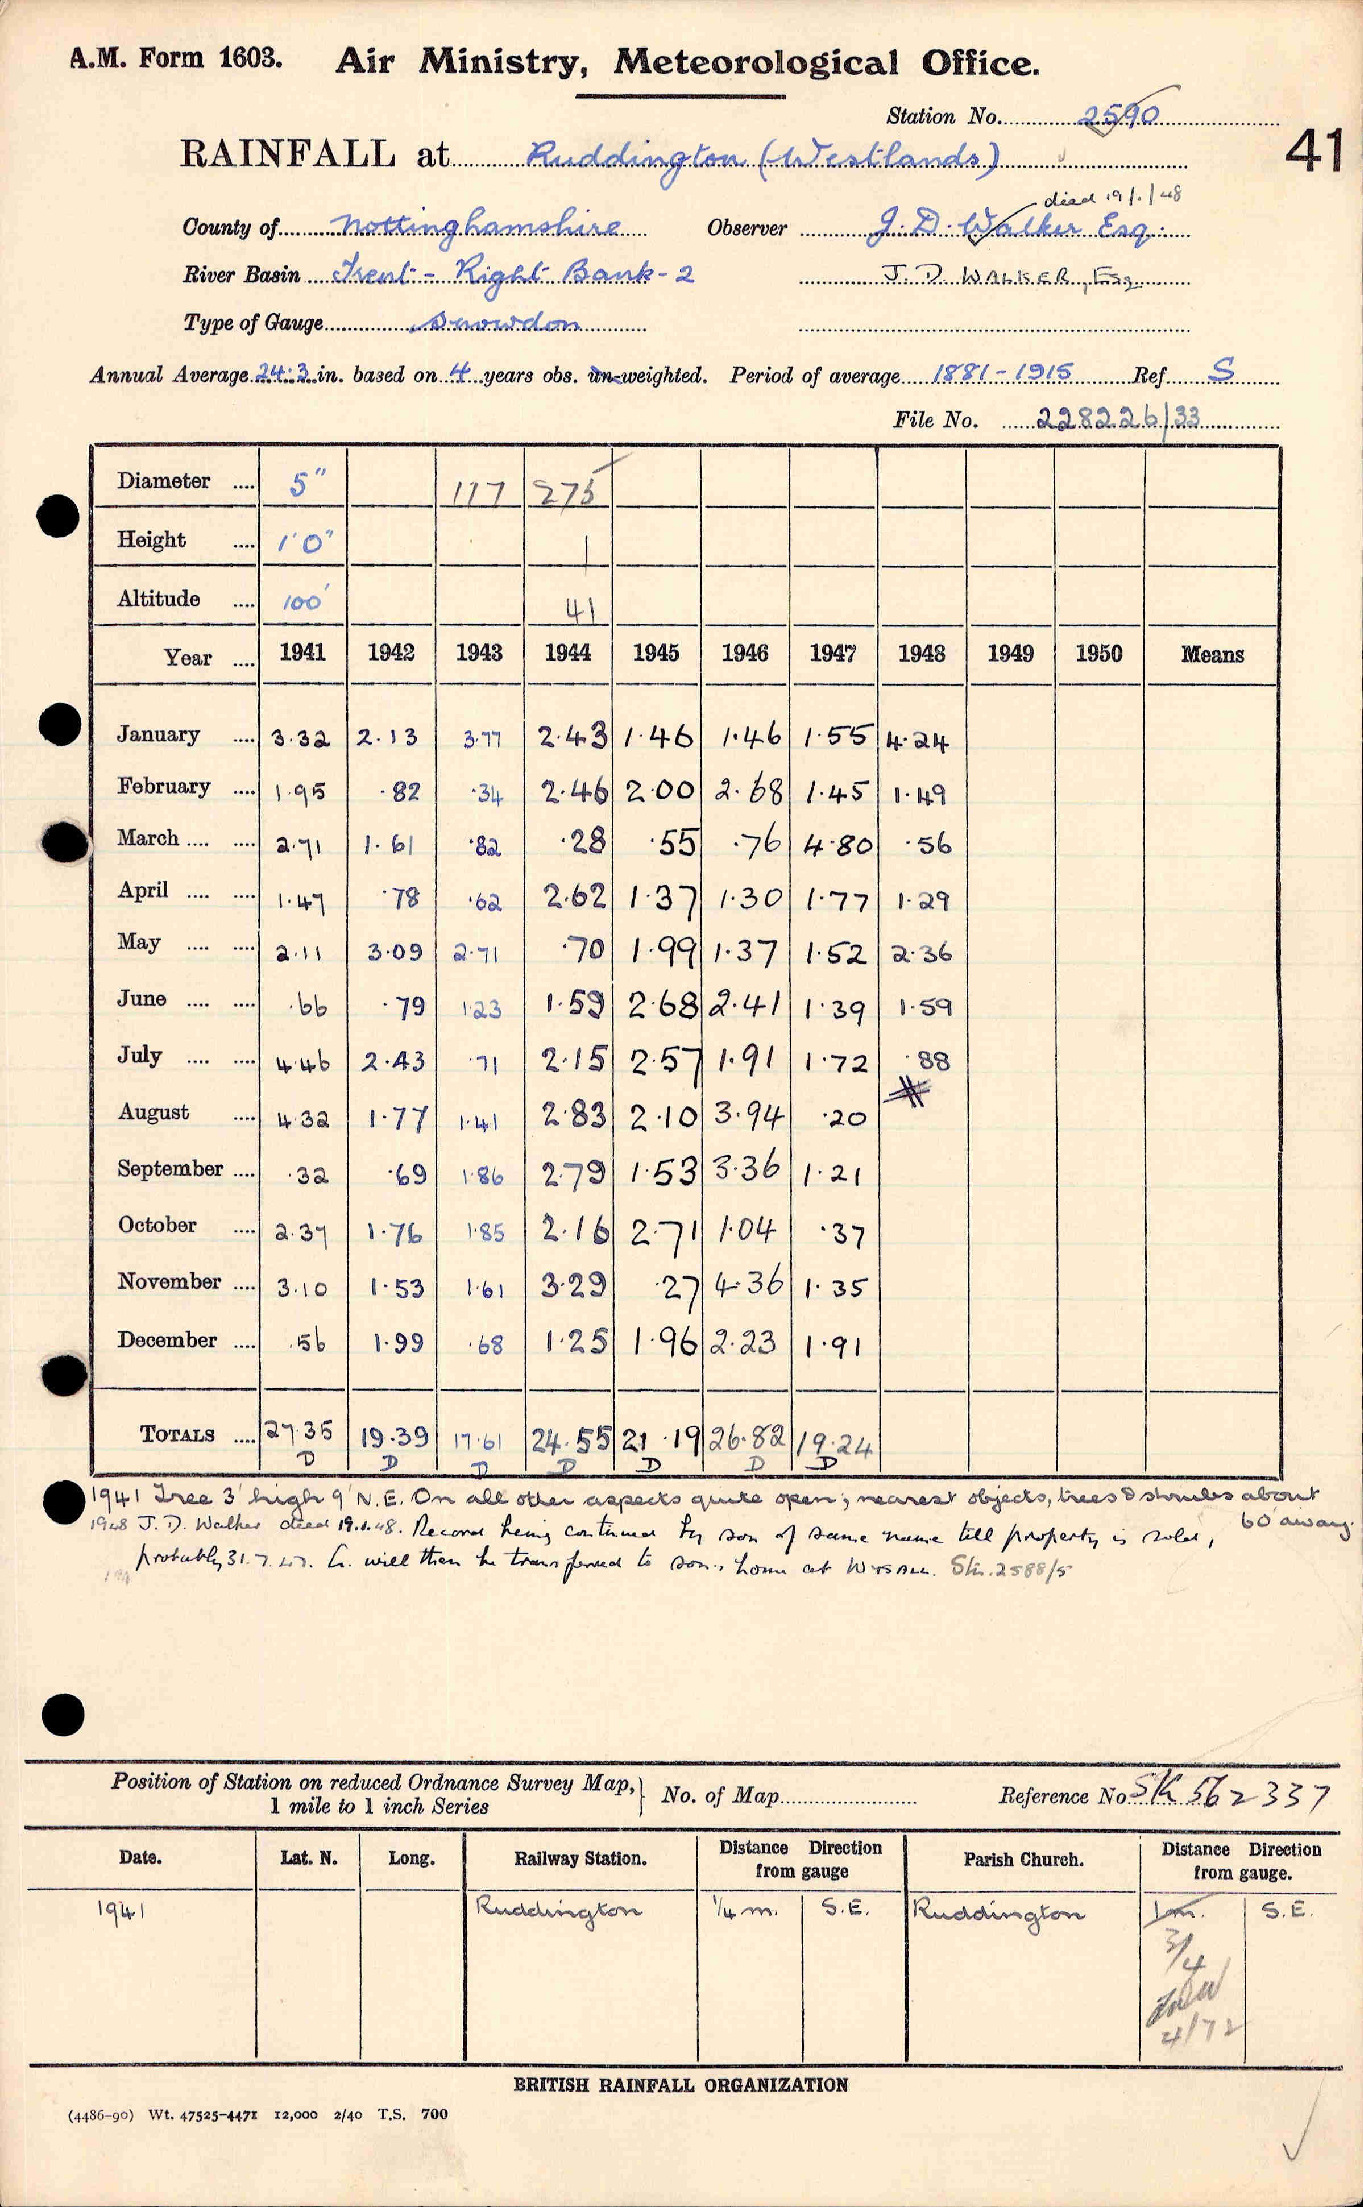 A.M. Form 1603. Air Ministry, Meteorological Office.
Station No. 2590
41
RAINFALL at Ruddington (Westlands)
died 19/1/48
County of Nottinghamshire Observer J. D. Walker Esq.
River Basin Trent - Right Bank - 2 J. D. WALKER, Esq
Type of Gauge Snowdon
Annual Average 24.3 in. based on 4 years obs. un-weighted. Period of average 1881-1915 Ref S
File No. 228226/33
Diameter .... 5" 117 275
Height .... 1'0" 1
Altitude .... 100' 41
Year .... 1941 1942 1943 1944 1945 1946 1947 1948 1949 1950 Means
January .... 3.32 2.13 3.77 2.43 1.46 1.46 1.55 4.24
February .... 1.95 .82 .34 2.46 2.00 2.68 1.45 1.49
March .... .... 2.71 1.61 .82 .28 .55 .76 4.80 .56
April .... .... 1.47 .78 .62 2.62 1.37 1.30 1.77 1.29
May .... .... 2.11 3.09 2.71 .70 1.99 1.37 1.52 2.36
June .... .... .66 .79 1.23 1.59 2.68 2.41 1.39 1.59
July .... .... 4.46 2.43 .71 2.15 2.57 1.91 1.72 .88
August .... 4.32 1.77 1.41 2.83 2.10 3.94 .20
September .... .32 .69 1.86 2.79 1.53 3.36 1.21
October .... 2.37 1.76 1.85 2.16 2.71 1.04 .37
November .... 3.10 1.53 1.61 3.29 .27 4.36 1.35
December .... .56 1.99 .68 1.25 1.96 2.23 1.91
TOTALS .... 27.35 19.39 17.61 24.55 21.19 26.82 19.24
D D D D D D D
1941 Tree 3' high 9' N.E. On all other aspects quite open; nearest objects, trees & shrubs about 60' away.
1948 J. D. Walker died 19.1.48. Record being continued by son of same name till property is sold,
probably 31.7.47. G. will then be transferred to son's home at WYSALL. Stn. 2588/5
Position of Station on reduced Ordnance Survey Map, 1 mile to 1 inch Series } No. of Map Reference No SK 562337
Date. Lat. N. Long. Railway Station. Distance Direction from gauge Parish Church. Distance Direction from gauge.
1941 Ruddington 1/4 m. S.E. Ruddington 1 m. S.E.
3/4
4/72
BRITISH RAINFALL ORGANIZATION
(4486-90) Wt. 47525-4471 12,000 2/40 T.S. 700